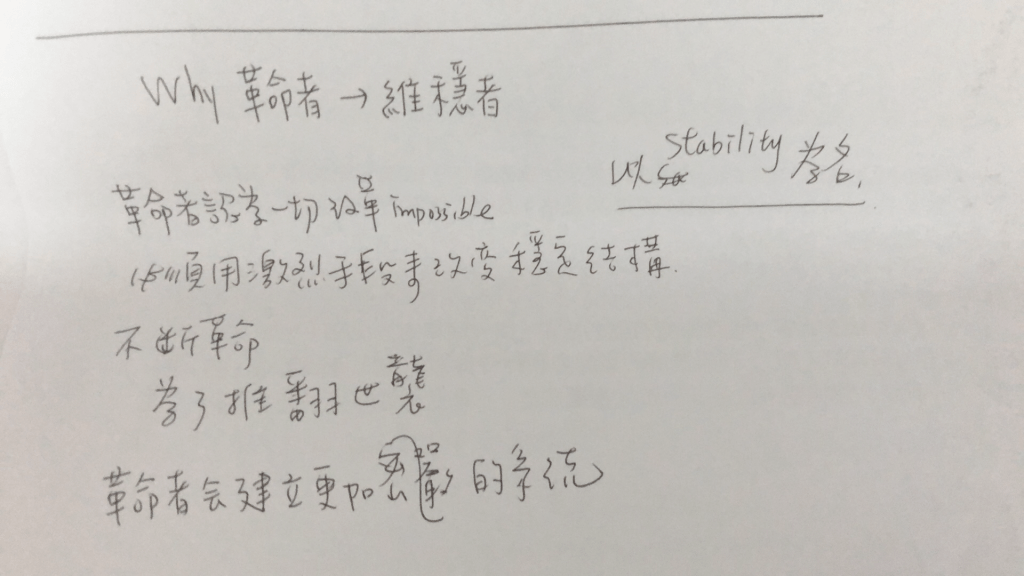 Why 革命者 → 維穩者
以 stability 為名.
革命者認為一切改革 impossible
必須用激烈手段來改变穩定結構.
不断革命
為了推翻世襲
革命者会建立更加密嚴的系统